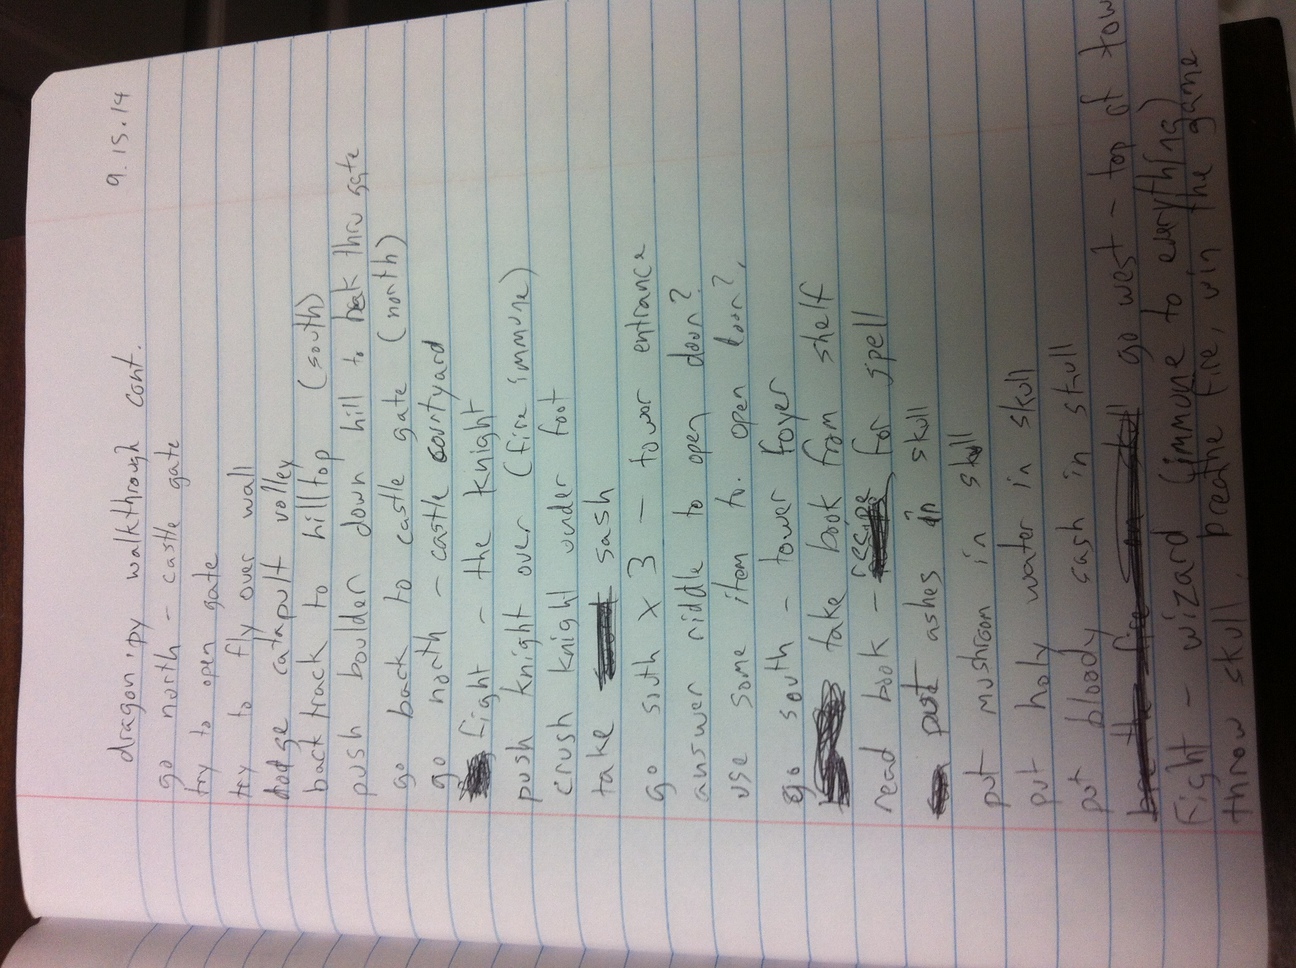 dragon.py walkthrough cont. 9.15.14
go north - castle gate
try to open gate
try to fly over wall
dodge catapult volley
back track to hilltop (south)
push boulder down hill to break thru gate
go back to castle gate (north)
go north - castle courtyard
fight - the knight
push knight over (fire immune)
crush knight under foot
take sash
go south x 3 - tower entrance
answer riddle to open door?
use some item to open door?
go south - tower foyer
take book from shelf
read book - recipe for spell
put ashes in skull
put mushroom in skull
put holy water in skull
put bloody sash in skull
breathe fire on skull go west - top of tow
Fight - wizard (immune to everything)
throw skull, breathe fire, win the game